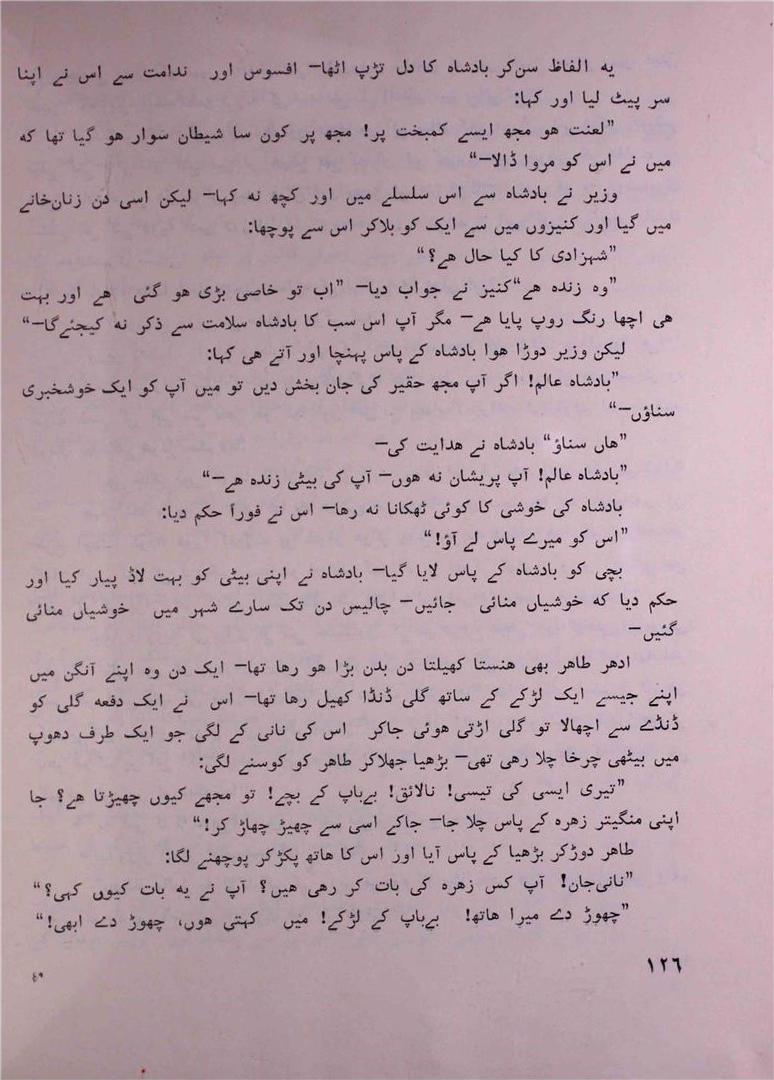 یہ الفاظ سن‌کر بادشاہ کا دل تڑپ اٹھا— افسوس اور ندامت سے اس نے اپنا
سر پیٹ لیا اور کہا:
”لعنت ھو مجھ ایسے کمبخت پر! مجھ پر کون سا شیطان سوار ھو گیا تھا کہ
میں نے اس کو مروا ڈالا—“
وزیر نے بادشاہ سے اس سلسلے میں اور کچھ نہ کہا— لیکن اسی دن زنان‌خانے
میں گیا اور کنیزوں میں سے ایک کو بلاکر اس سے پوچھا:
”شہزادی کا کیا حال ھے؟“
”وہ زندہ ھے“ کنیز نے جواب دیا— ”اب تو خاصی بڑی ھو گئی ھے اور بہت
ھی اچھا رنگ روپ پایا ھے— مگر آپ اس سب کا بادشاہ سلامت سے ذکر نہ کیجئے‌گا—“
لیکن وزیر دوڑا ھوا بادشاہ کے پاس پہنچا اور آتے ھی کہا:
”بادشاہ عالم! اگر آپ مجھ حقیر کی جان بخش دیں تو میں آپ کو ایک خوشخبری
سناؤں—“
”ھاں سناؤ“ بادشاہ نے ھدایت کی—
”بادشاہ عالم! آپ پریشان نہ ھوں— آپ کی بیٹی زندہ ھے—“
بادشاہ کی خوشی کا کوئی ٹھکانا نہ رھا— اس نے فوراً حکم دیا:
”اس کو میرے پاس لے آؤ!“
بچی کو بادشاہ کے پاس لایا گیا— بادشاہ نے اپنی بیٹی کو بہت لاڈ پیار کیا اور
حکم دیا کہ خوشیاں منائی جائیں— چالیس دن تک سارے شہر میں خوشیاں منائی
گئیں—
ادھر طاھر بھی ھنستا کھیلتا دن بدن بڑا ھو رھا تھا— ایک دن وہ اپنے آنگن میں
اپنے جیسے ایک لڑکے کے ساتھ گلی ڈنڈا کھیل رھا تھا— اس نے ایک دفعہ گلی کو
ڈنڈے سے اچھالا تو گلی اڑتی ھوئی جاکر اس کی نانی کے لگی جو ایک طرف دھوپ
میں بیٹھی چرخا چلا رھی تھی— بڑھیا جھلاکر طاھر کو کوسنے لگی:
”تیری ایسی کی تیسی! نالائق! بے‌باپ کے بچے! تو مجھے کیوں چھیڑتا ھے؟ جا
اپنی منگیتر زھرہ کے پاس چلا جا— جاکے اسی سے چھیڑ چھاڑ کر!“
طاھر دوڑکر بڑھیا کے پاس آیا اور اس کا ھاتھ پکڑکر پوچھنے لگا:
”نانی‌جان! آپ کس زھرہ کی بات کر رھی ھیں؟ آپ نے یہ بات کیوں کہی؟“
”چھوڑ دے میرا ھاتھ! بے‌باپ کے لڑکے! میں کہتی ھوں، چھوڑ دے ابھی!“
١٢٦